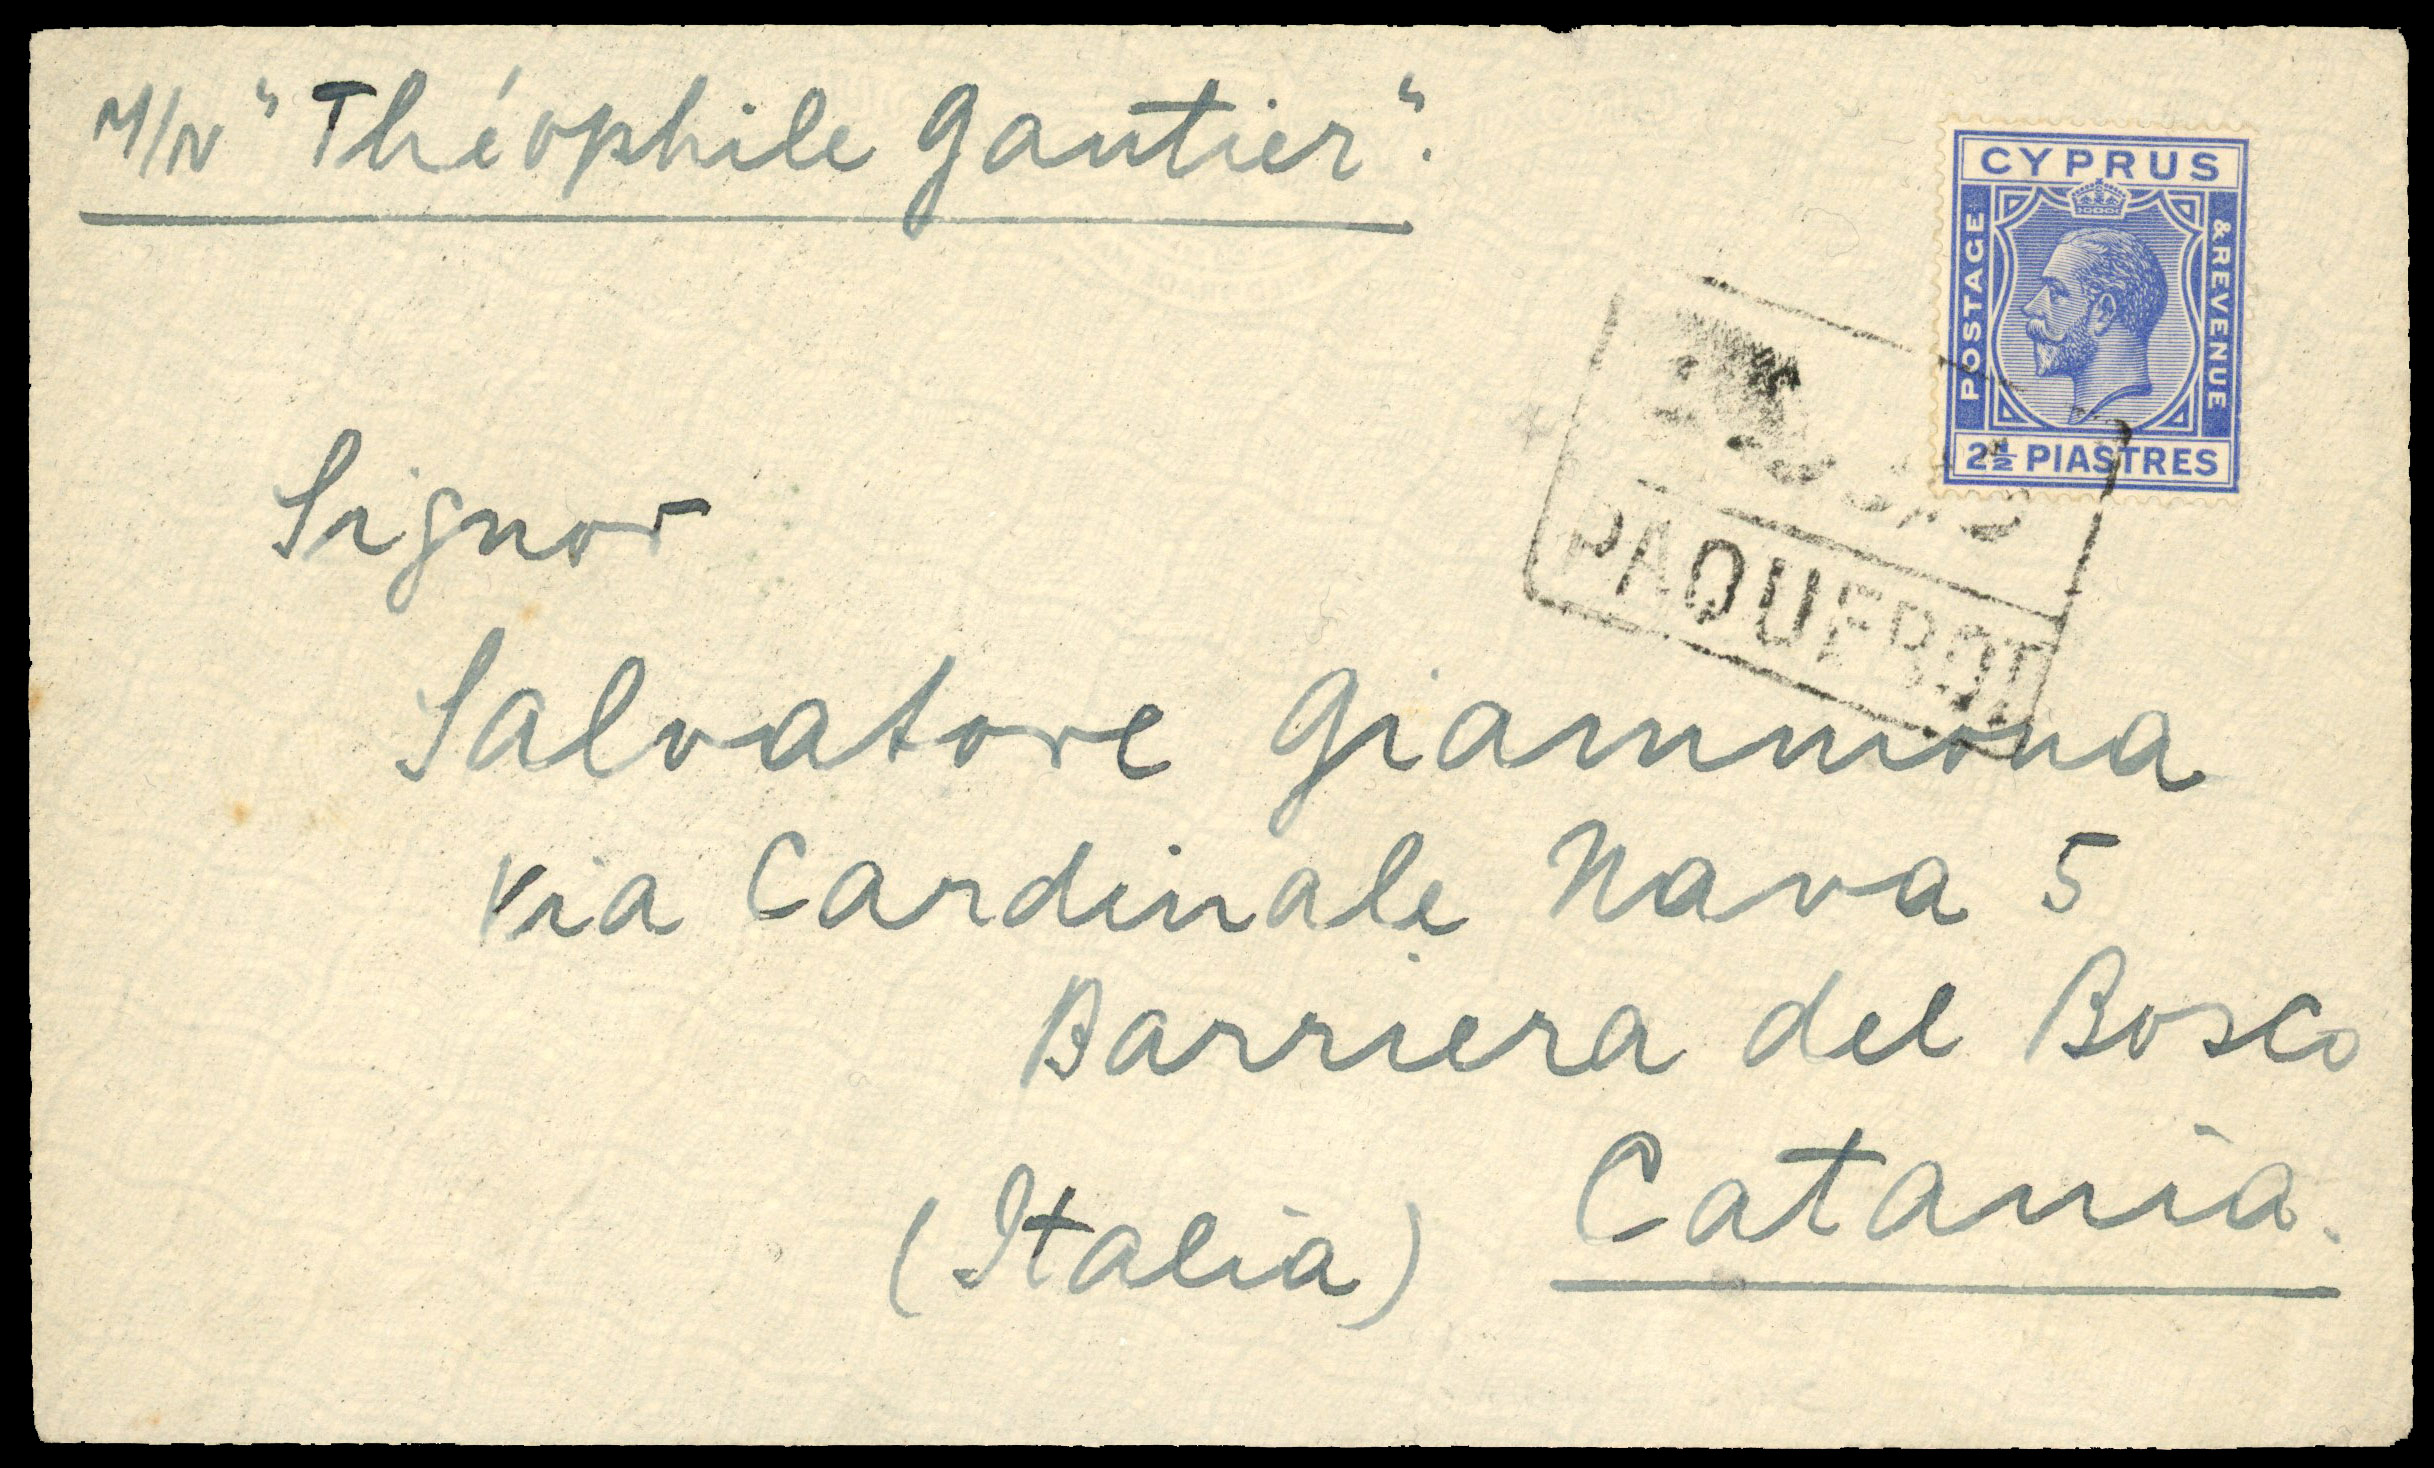 M/N "Théophile Gautier".
CYPRUS
POSTAGE
& REVENUE
2½ PIASTRES
PAQUEBOT
Signor
Salvatore Giammona
Via Cardinale Nava 5
Barriera del Bosco
Catania.
(Italia)